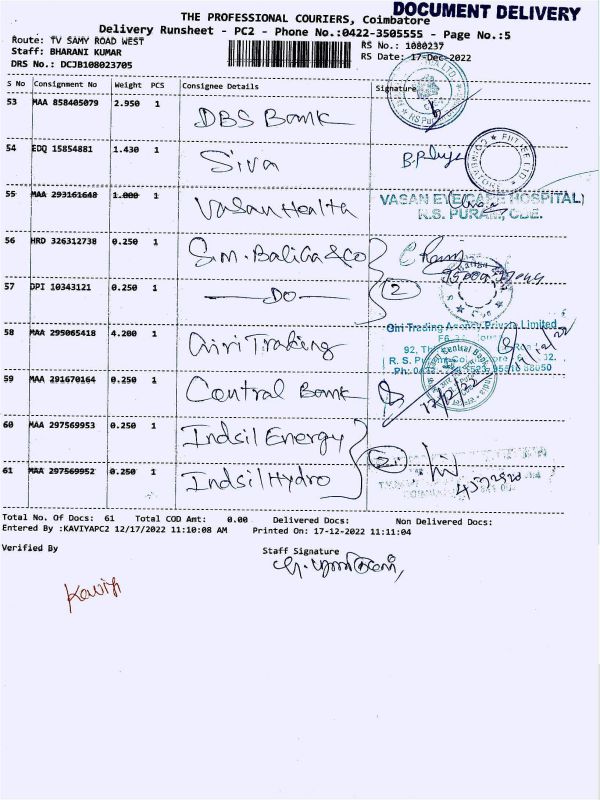 DOCUMENT DELIVERY
THE PROFESSIONAL COURIERS, Coimbatore
Delivery Runsheet - PC2 - Phone No.:0422-3505555 - Page No.:5
Route: TV SAMY ROAD WEST
RS No.: 1080237
Staff: BHARANI KUMAR
RS Date: 17-Dec-2022
DRS No.: DCJB108023705
S No Consignment No Weight PCS Consignee Details Signature
53 MAA 858405079 2.950 1 DBS Bank
54 EDQ 15854881 1.430 1 Siva
55 MAA 293161648 1.000 1 Vasan Health
VASAN EYE CARE HOSPITAL)
R.S. PURAM, CBE.
56 HRD 326312738 0.250 1 S.M. Baliga & Co
57 DPI 10343121 0.250 1 —DO— 2
58 MAA 295065418 4.200 1 Giri Trading
Giri Trading Agency Private Limited
59 MAA 291670164 0.250 1 Central Bank
17/12/22
60 MAA 297569953 0.250 1 Indsil Energy
2
61 MAA 297569952 0.250 1 Indsil Hydro
Total No. Of Docs: 61 Total COD Amt: 0.00 Delivered Docs: Non Delivered Docs:
Entered By :KAVIYAPC2 12/17/2022 11:10:08 AM Printed On: 17-12-2022 11:11:04
Verified By
Staff Signature
Kaviya